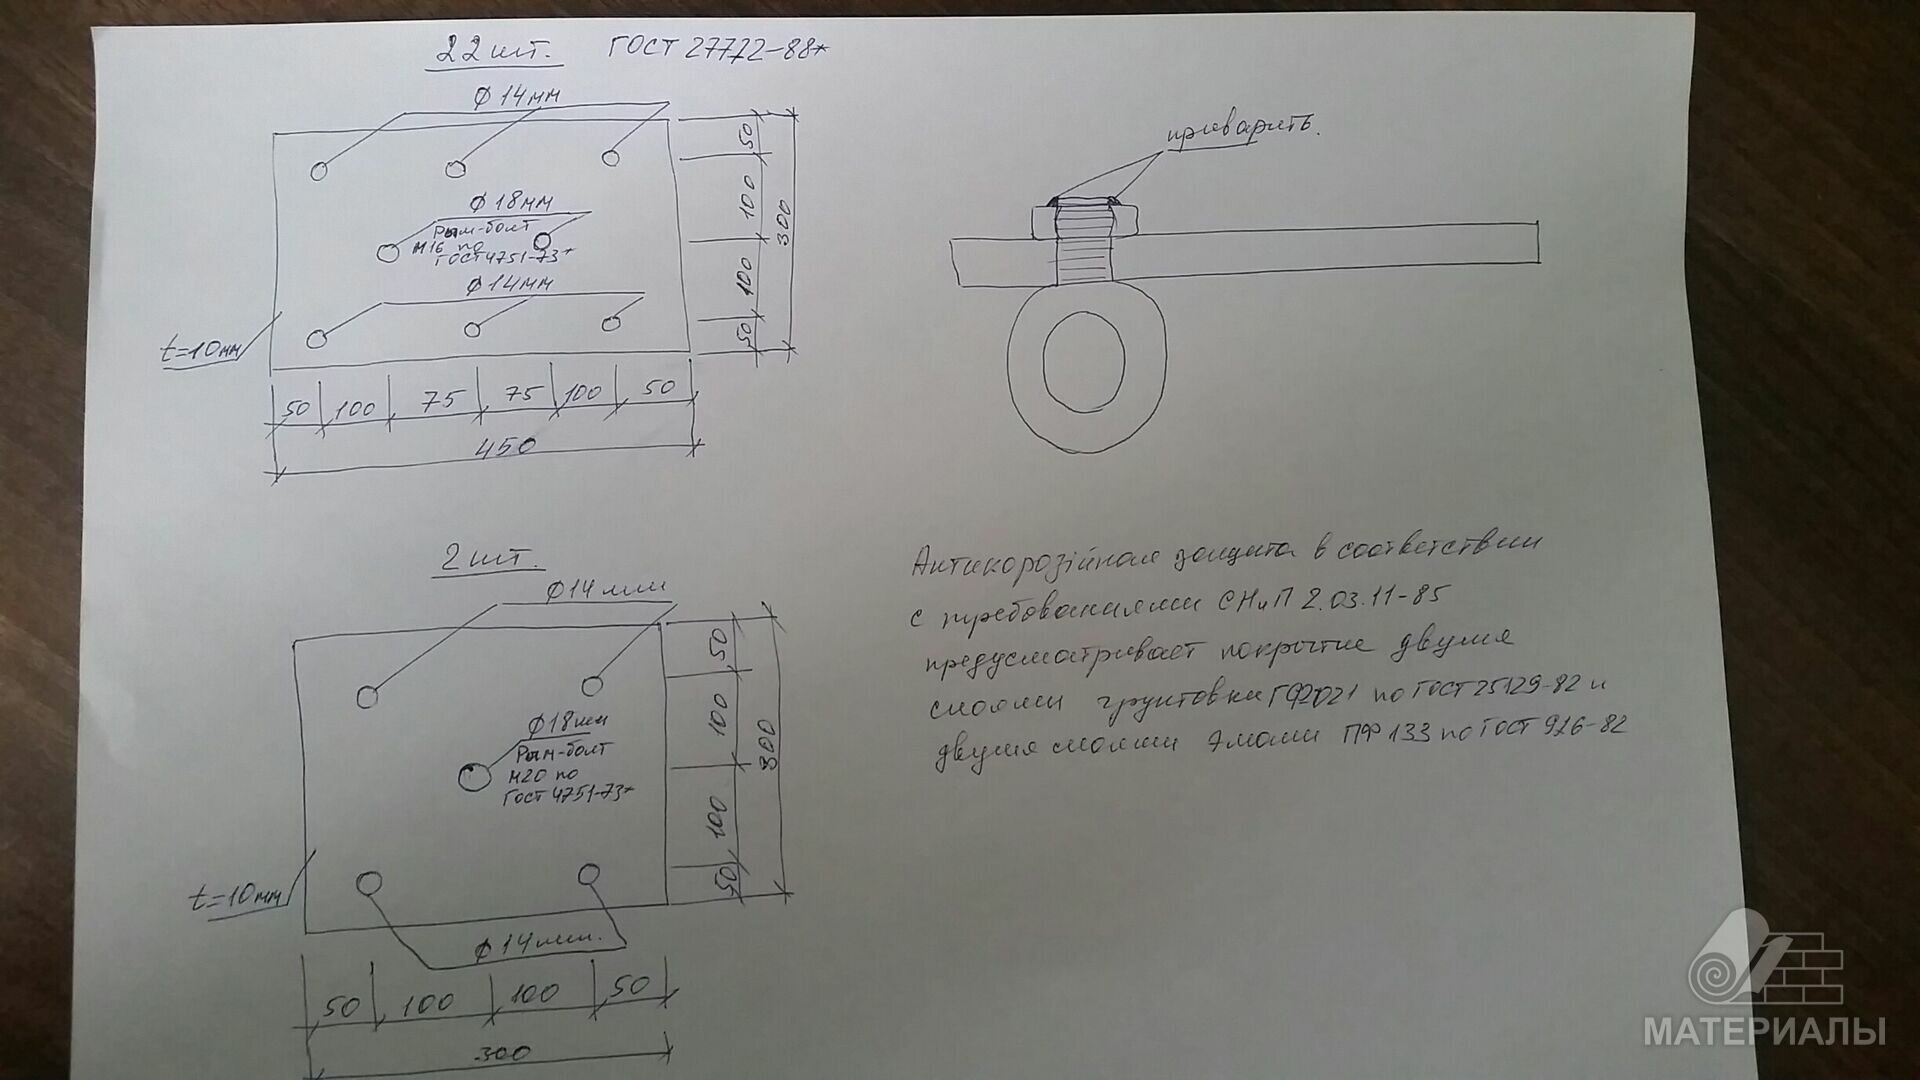 22 шт. ГОСТ 27772-88*
Ф 14мм
Ф 18мм
Рым-болт
М16 по
ГОСТ 4751-73*
Ф 14мм
t=10мм
50
100
100
50
300
50 100 75 75 100 50
450
приварить.
2 шт.
Ф14 мм
Ф18мм
Рым-болт
М20 по
ГОСТ 4751-73*
t=10мм
Ф 14мм.
50
100
100
50
300
50 100 100 50
300
Антикорозійная защита в соответствии
с требованиями СНиП 2.03.11-85
предусматривает покрытие двумя
слоями грунтовки ГФ021 по ГОСТ 25129-82 и
двумя слоями эмали ПФ 133 по ГОСТ 926-82
МАТЕРИАЛЫ